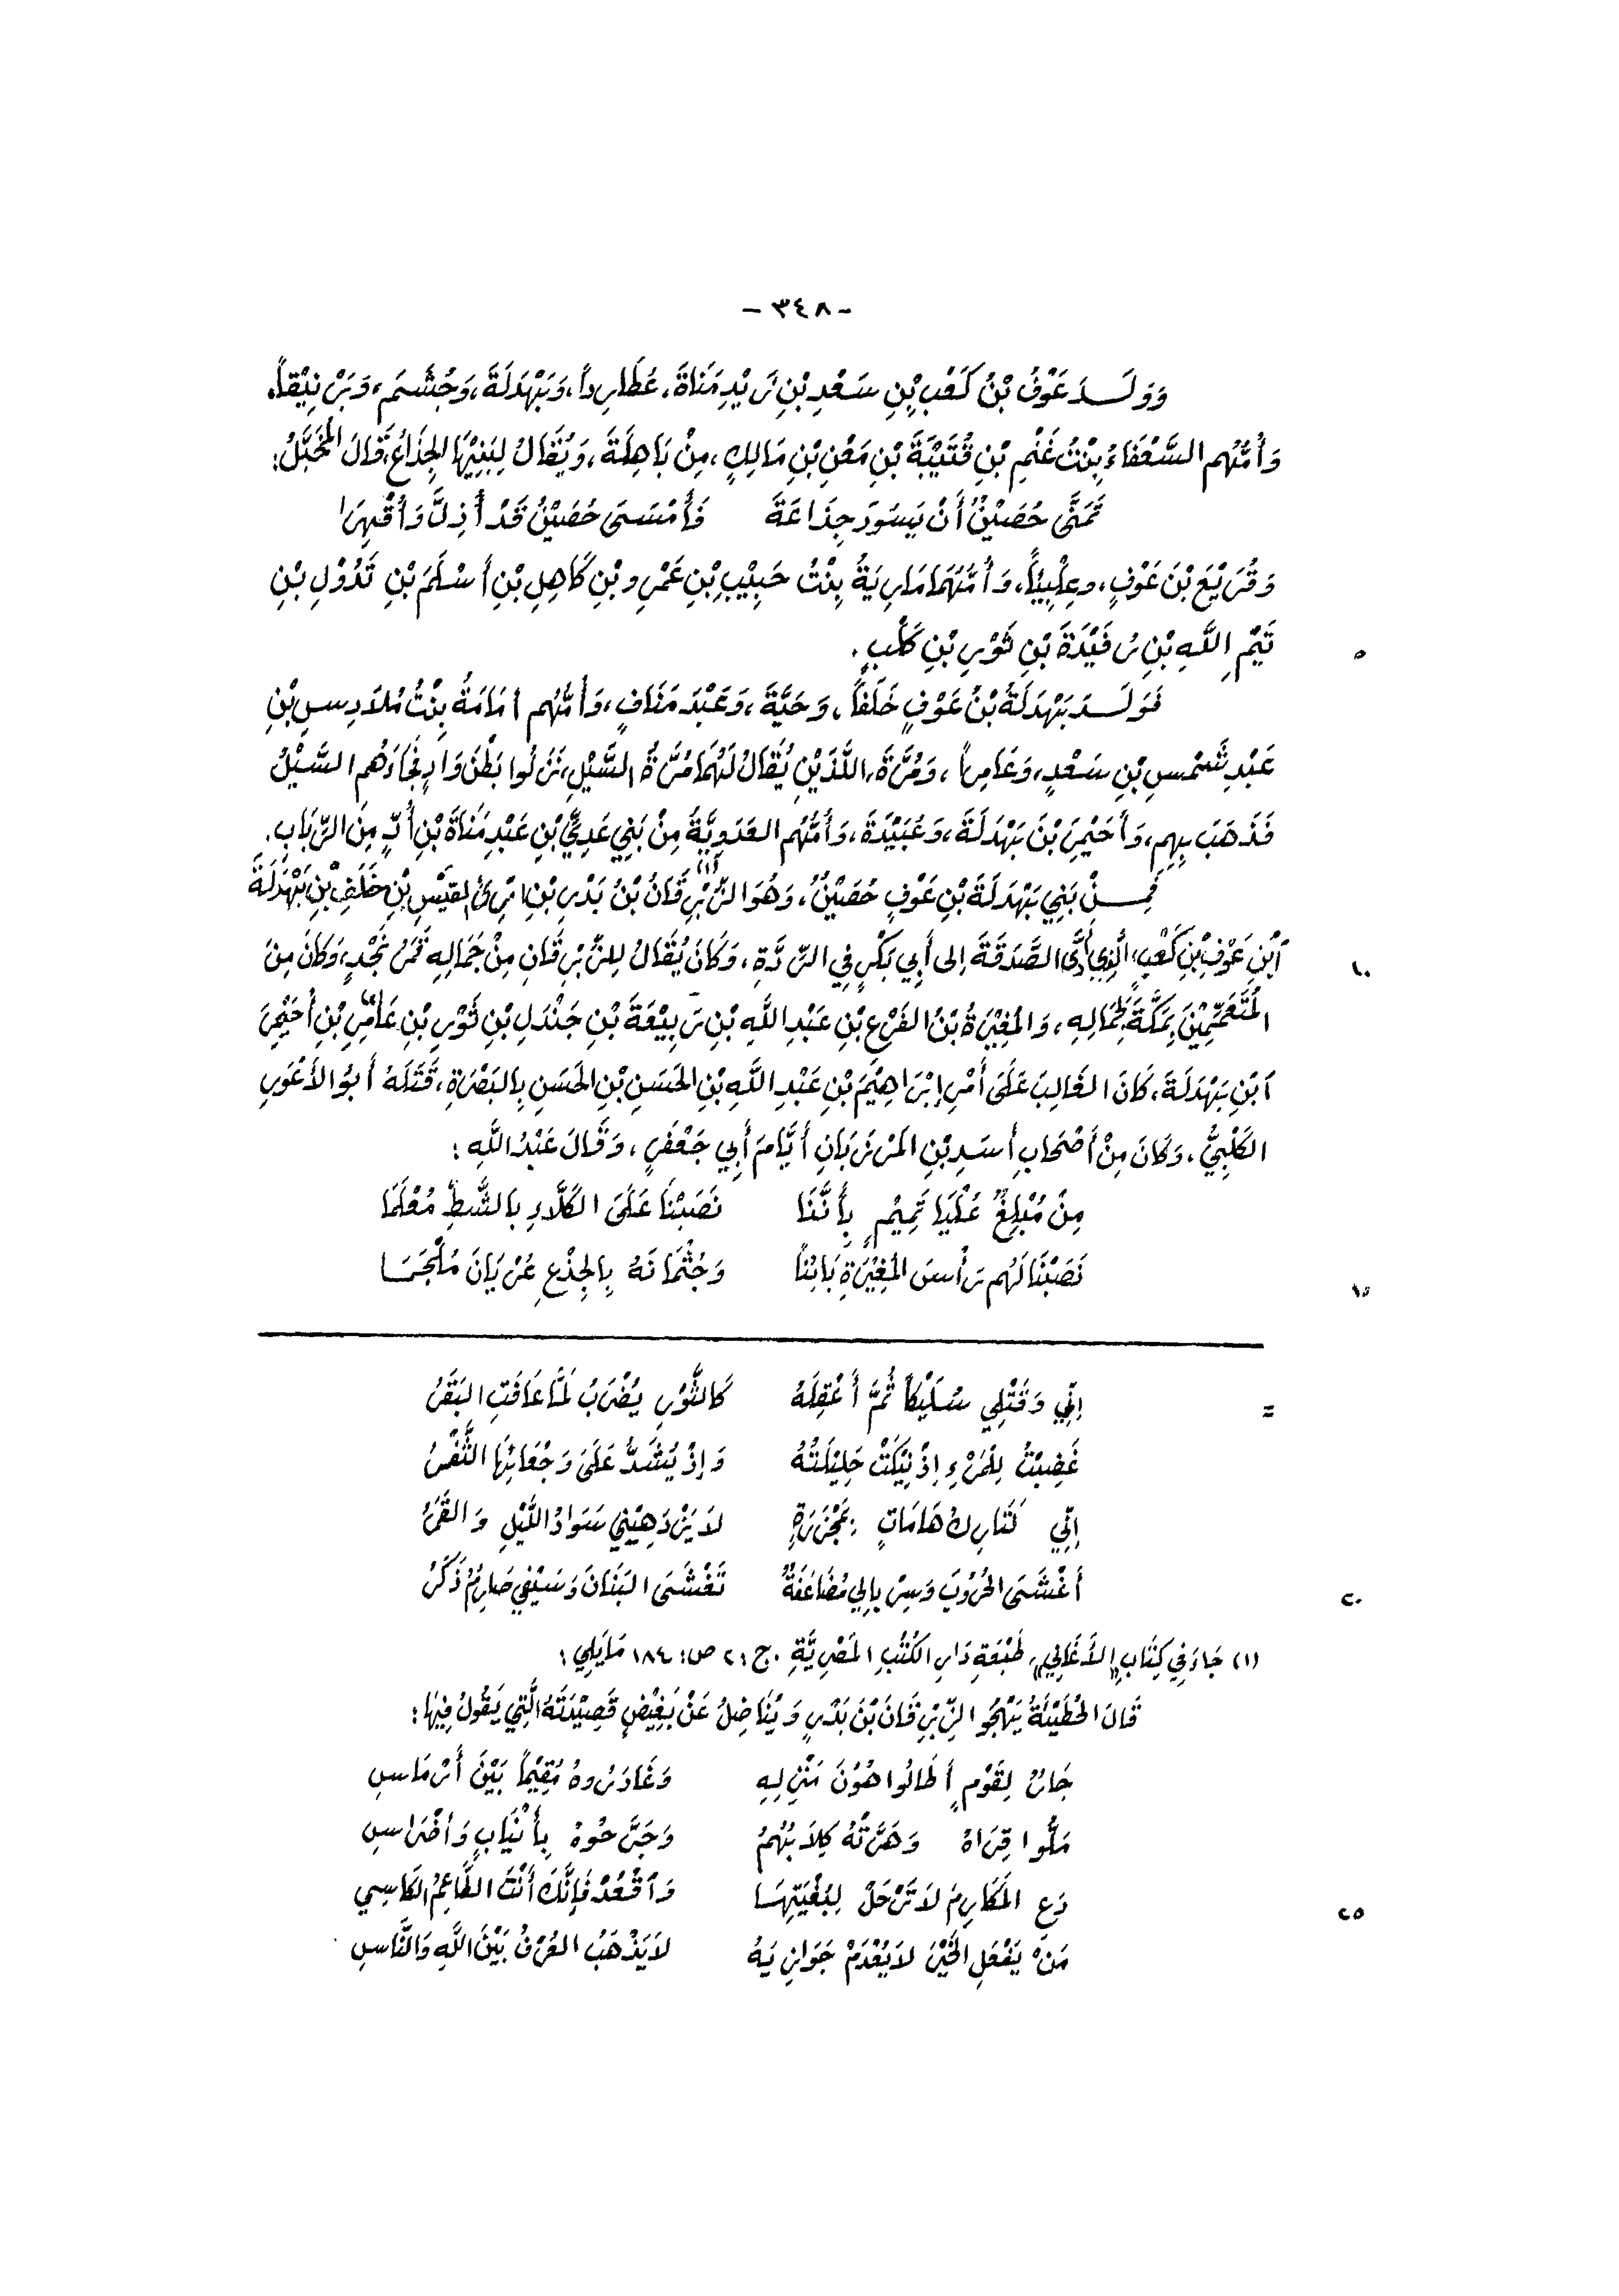 - ٣٤٨ -
وَوَلَدَ عَوْفُ بْنُ كَعْبِ بْنِ سَعْدِ بْنِ زَيْدِ مَنَاةَ، عُطَارِداً، وَبَهْدَلَةَ، وَجُشَمَ، وَبَرْنِيْقاً،
وَأُمُّهُم السَّعْفَاءُ بِنْتُ غَنْمِ بْنِ قُتَيْبَةَ بْنِ مَعْنِ بْنِ مَالِكٍ، مِنْ بَاهِلَةَ، وَيُقَالُ لِبَنِيْهَا الجِذَاعُ، قَالَ المُخَبَّلُ:
تَمَنَّى حُصَيْنٌ أَنْ يَسُودَ جِذَاعَةَ فَأَمْسَى حُصَيْنٌ قَدْ أُذِلَّ وَأُقْهِرَا
وَقُرَيْعَ بْنَ عَوْفٍ، وعِلْبِيْاً، وَأُمُّهُمَا مَارِيَةُ بِنْتُ حَبِيْبِ بْنِ عَمْرِو بْنِ كَاهِلِ بْنِ أَسْلَمَ بْنِ تَدُوْلِ بْنِ
تَيْمِ اللَّهِ بْنِ رُفَيْدَةَ بْنِ ثَوْرِ بْنِ كَلْبٍ.
٥
فَوَلَدَ بَهْدَلَةُ بْنُ عَوْفٍ خَلَفاً، وَحَيَّةَ، وَعَبْدَ مَنَافٍ، وَأُمُّهُم أُمَامَةُ بِنْتُ مُلَادِسِ بْنِ
عَبْدِ شَمْسِ بْنِ سَعْدٍ، وَعَامِراً، وَمُرَّةَ، اللَّذَيْنِ يُقَالُ لَهُمَا مُرَّةُ السَّيْلِ، نَزَلُوا بَطْنَ وَادٍ فَجَاءَهُم السَّيْلُ
فَذَهَبَ بِهِم، وَأُحَيْمِرَ بْنَ بَهْدَلَةَ، وَعُبَيْدَةَ، وَأُمُّهُم العَدَوِيَّةُ مِنْ بَنِي عَدِيِّ بْنِ عَبْدِ مَنَاةَ بْنِ أُدٍّ مِنَ الرِّبَابِ.
فَمِنْ بَنِي بَهْدَلَةَ بْنِ عَوْفٍ حُصَيْنٌ، وَهُوَ الزِّبْرِقَانُ (١) بْنُ بَدْرِ بْنِ امْرِئِ القَيْسِ بْنِ خَلَفِ بْنِ بَهْدَلَةَ
ٱبْنِ عَوْفِ بْنِ كَعْبٍ، الَّذِي أَدَّى الصَّدَقَةَ إلى أَبِي بَكْرٍ فِي الرِّدَّةِ، وَكَانَ يُقَالُ لِلزِّبْرِقَانِ مِنْ جَمَالِهِ قَمَرُ نَجْدٍ، وَكَانَ مِنَ
١٠
المُتَعَمِّمِيْنَ بِمَكَّةَ لِجَمَالِهِ، وَالمُغِيْرَةُ بْنُ الفَزْعِ بْنِ عَبْدِ اللَّهِ بْنِ رَبِيْعَةَ بْنِ جَنْدَلِ بْنِ ثَوْرِ بْنِ عَامِرِ بْنِ أُحَيْمِرَ
ٱبْنِ بَهْدَلَةَ، كَانَ الغَالِبَ عَلَى أَمْرِ إبْرَاهِيْمَ بْنِ عَبْدِ اللَّهِ بْنِ الحَسَنِ بْنِ الحَسَنِ بِالبَصْرَةِ، قَتَلَهُ أَبُو الأَعْوَرِ
الكَلْبِيُّ، وَكَانَ مِنْ أَصْحَابِ أَسَدِ بْنِ المَرْزَبَانِ أَيَّامَ أَبِي جَعْفَرٍ، وَقَالَ عَبْدُ اللَّهِ:
مِنْ مُبْلِغٌ عُلْيَا تَمِيْمٍ بِأَنَّنَا نَصَبْنَا عَلَى الكَلَّادِ بِالشَّطِّ مُعْلَمَا
نَصَبْنَا لَهُم رَأْسَ المُغِيْرَةِ بَائِناً وَجُثْمَانَهُ بِالجِذْعِ عُرْيَانَ مُلْجَمَا
١٥
إنِّي وَقَتْلِي سُلَيْكاً ثُمَّ أَعْقِلَهُ كَالثَّوْرِ يُضْرَبُ لَمَّا عَافَتِ البَقَرُ
=
غَضِبْتُ لِلمَرْءِ إذْ نِيْكَتْ حَلِيْلَتُهُ وَإذْ يُشَدُّ عَلَى وَجْعَائِهَا الثَّفْرُ
إنِّي لَتَارِكُ هَامَاتٍ بِمَجْزَرَةٍ لَا يَزْدَهِيْنِي سَوَادُ اللَّيْلِ وَالقَمَرُ
أَغْشَى الحُرُوبَ وَسِرْبَالِي مُضَاعَفَةٌ تَغْشَى البَنَانَ وَسَيْفِي صَارِمٌ ذَكَرُ
٢٠
(١) جَاءَ فِي كِتَابِ «الأَغَانِي» طَبْعَةِ دَارِ الكُتُبِ المَصْرِيَّةِ. ج: ٢ ص: ١٨٤ مَايَلِي:
قَالَ الحُطَيْئَةُ يَهْجُو الزِّبْرِقَانَ بْنَ بَدْرٍ وَيُنَاضِلُ عَنْ بَغِيْضٍ قَصِيْدَتَهُ الَّتِي يَقُولُ فِيْهَا:
جَارٌ لِقَوْمٍ أَطَالُوا هُوْنَ مَنْزِلِهِ وَغَادَرُوهُ مُقِيْماً بَيْنَ أَرْمَاسِ
مَلُّوا قِرَاهُ وَهَرَّتْهُ كِلَابُهُمُ وَجَرَّحُوْهُ بِأَنْيَابٍ وَأَضْرَاسِ
دَعِ المَكَارِمَ لَا تَرْحَلْ لِبُغْيَتِهَا وَٱقْعُدْ فَإنَّكَ أَنْتَ الطَّاعِمُ الكَاسِي
٢٥
مَنْ يَفْعَلِ الخَيْرَ لَا يَعْدَمْ جَوَازِيَهُ لَا يَذْهَبُ العُرْفُ بَيْنَ اللَّهِ وَالنَّاسِ